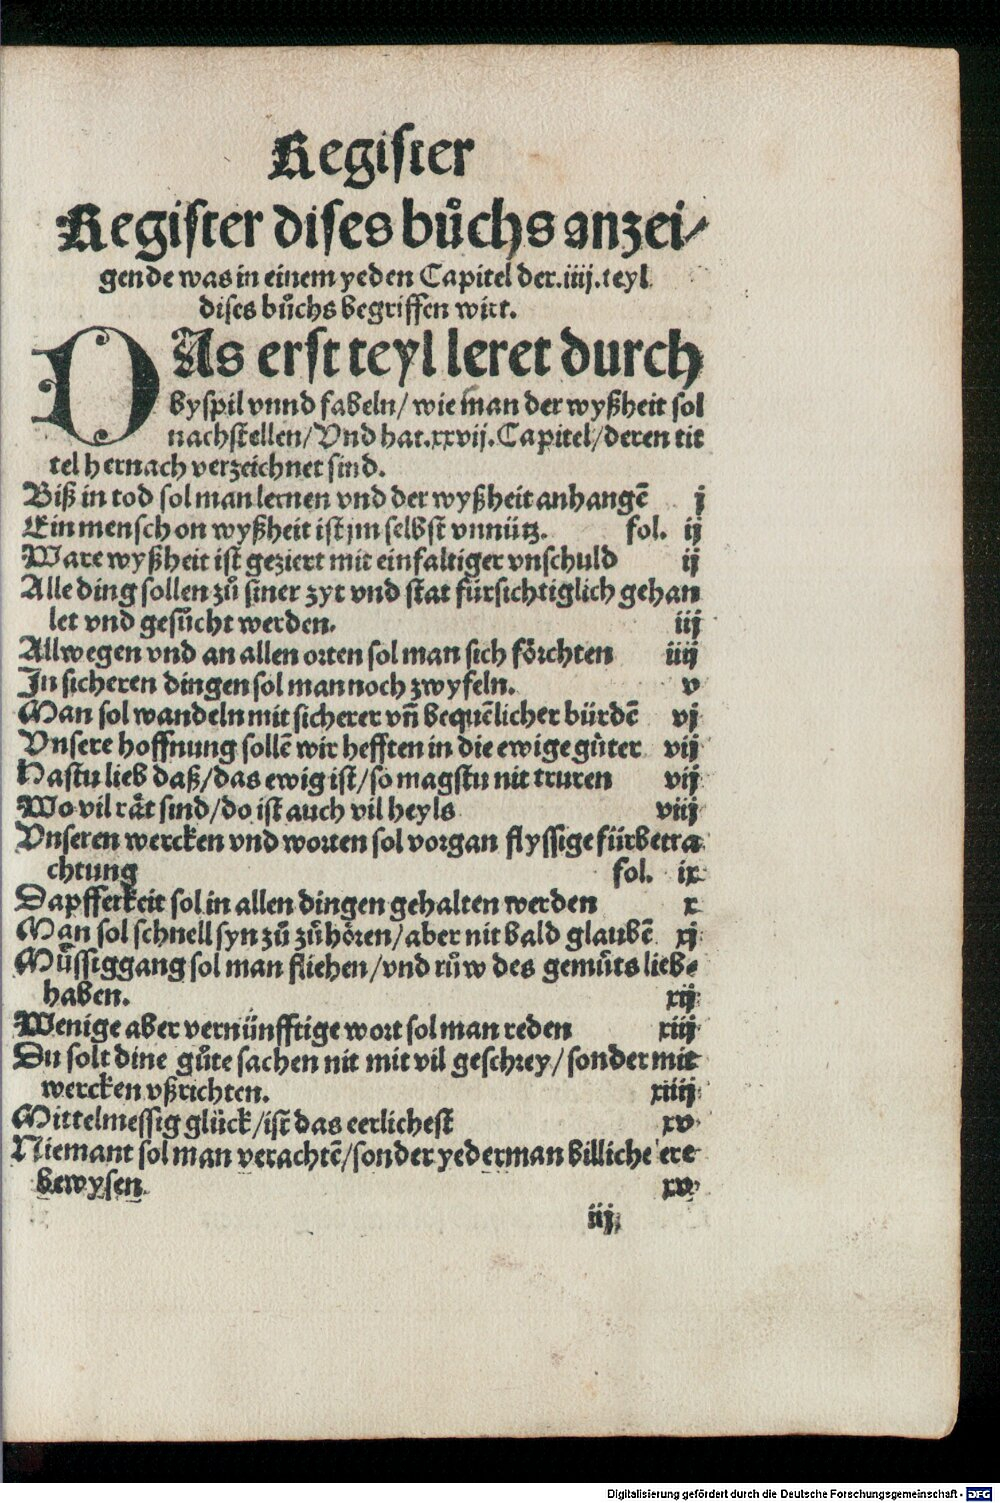 Register
Register dises bůchs anzei⸗
gende was in einem yeden Capitel der .iiij. teyl
dises bůchs begriffen wirt.
DAs erst teyl leret durch
byspil vnnd fabeln/ wie man der wyßheit sol
nachstellen/ Vnd hat .xxvij. Capitel/ deren tit
tel hernach verzeichnet sind.
Biß in tod sol man lernen vnd der wyßheit anhangē j
Ein mensch on wyßheit ist jm selbst vnnütz. fol. ij
Ware wyßheit ist geziert mit einfaltiger vnschuld ij
Alle ding sollen zů siner zyt vnd stat fürsichtiglich gehan
let vnd gesůcht werden. iij
Allwegen vnd an allen orten sol man sich förchten iiij
In sicheren dingen sol man noch zwyfeln. v
Man sol wandeln mit sicherer vñ bequēlicher bürdē vj
Vnsere hoffnung sollē wir hefften in die ewige gůter vij
Hastu lieb daß/ das ewig ist/ so magstu nit truren vij
Wo vil rät sind/ do ist auch vil heyls viij
Vnseren wercken vnd worten sol vorgan flyssige fürbetra
chtung fol. ix
Dapfferkeit sol in allen dingen gehalten werden x
Man sol schnell syn zů zůhören/ aber nit bald glaubē xj
Müssiggang sol man fliehen/ vnd růw des gemůts lieb⸗
haben. xij
Wenige aber vernünfftige wort sol man reden xiij
Du solt dine gůte sachen nit mit vil geschrey/ sonder mit
wercken vßrichten. xiiij
Mittelmessig glück/ ist das eerlichest xv
Niemant sol man verachtē/ sonder yederman billiche ere
bewysen. xv
iij